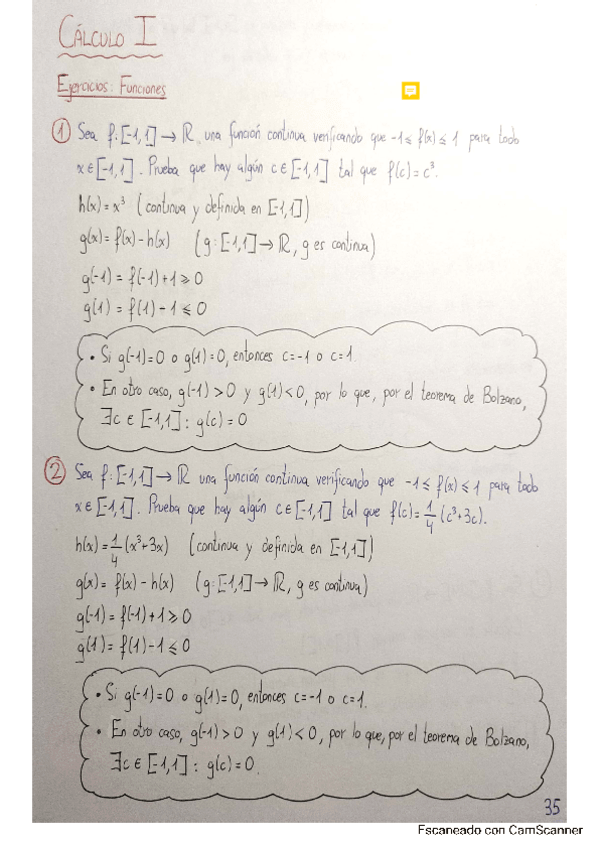 CÁLCULO I
Ejercicios: Funciones
① Sea f: [-1,1] → ℝ una función continua verificando que -1 ≤ f(x) ≤ 1 para todo
x ∈ [-1,1]. Prueba que hay algún c ∈ [-1,1] tal que f(c) = c³.
h(x) = x³ (continua y definida en [-1,1])
g(x) = f(x) - h(x) (g: [-1,1] → ℝ, g es continua)
g(-1) = f(-1) + 1 ≥ 0
g(1) = f(1) - 1 ≤ 0
• Si g(-1) = 0 o g(1) = 0, entonces c = -1 o c = 1.
• En otro caso, g(-1) > 0 y g(1) < 0, por lo que, por el teorema de Bolzano,
∃c ∈ [-1,1] : g(c) = 0
② Sea f: [-1,1] → ℝ una función continua verificando que -1 ≤ f(x) ≤ 1 para todo
x ∈ [-1,1]. Prueba que hay algún c ∈ [-1,1] tal que f(c) = 1/4 (c³+3c).
h(x) = 1/4 (x³+3x) (continua y definida en [-1,1])
g(x) = f(x) - h(x) (g: [-1,1] → ℝ, g es continua)
g(-1) = f(-1) + 1 ≥ 0
g(1) = f(1) - 1 ≤ 0
• Si g(-1) = 0 o g(1) = 0, entonces c = -1 o c = 1.
• En otro caso, g(-1) > 0 y g(1) < 0, por lo que, por el teorema de Bolzano,
∃c ∈ [-1,1] : g(c) = 0.
35
Escaneado con CamScanner